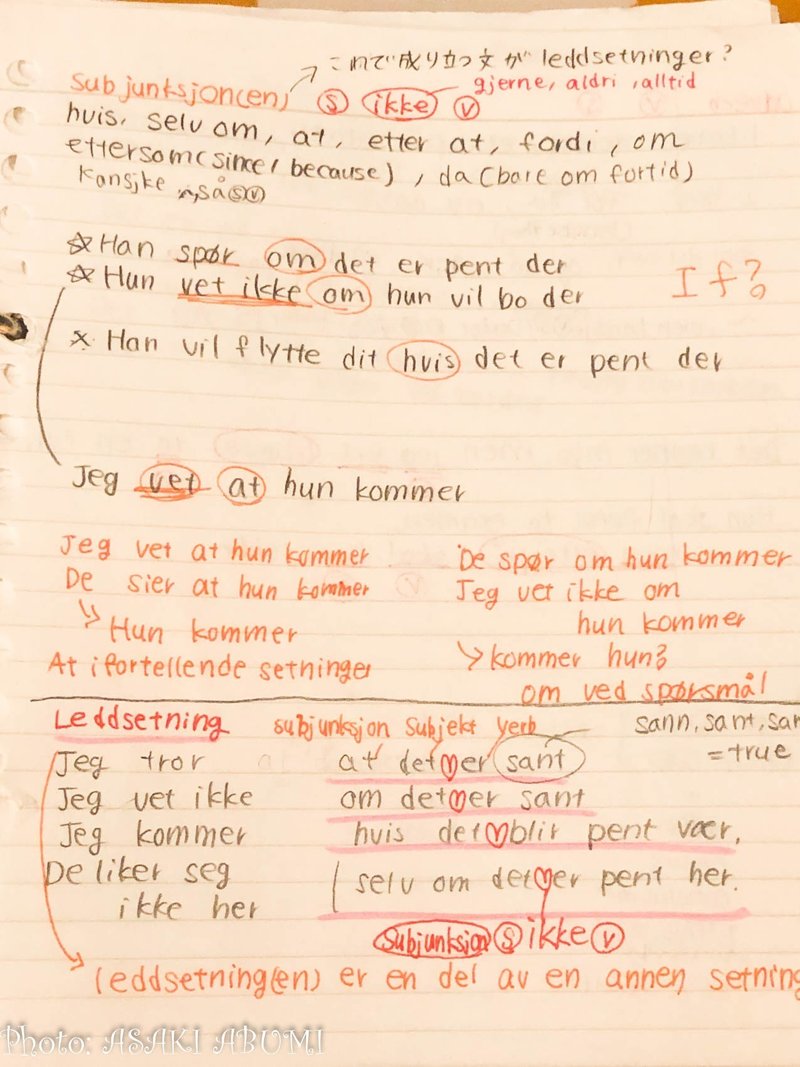 これで成り立つ文が leddsetninger?
Subjunksjon(en) S ikke V gjerne, aldri, alltid
huis, selv om, at, etter at, fordi, om
ettersom(since/because), da(bare om fortid)
Kansjke så S V
☆Han spør om det er pent der
☆Hun vet ikke om hun vil bo der
If?
☆Han vil flytte dit huis det er pent der
Jeg vet at hun kommer
Jeg vet at hun kommer
De sier at hun kommer
Hun kommer
At i fortellende setninger
De spør om hun kommer
Jeg vet ikke om
hun kommer
kommer hun?
om ved spørsmål
Leddsetning subjunksjon Subjekt Verb
sann, sant,
=true
Jeg tror at det er sant
Jeg vet ikke om det er sant
Jeg kommer huis det blir pent vær.
De liker seg
ikke her selv om det er pent her.
Subjunksjon S ikke V
leddsetning(en) er en del av en annen setning
Photo: ASAKI ABUMI